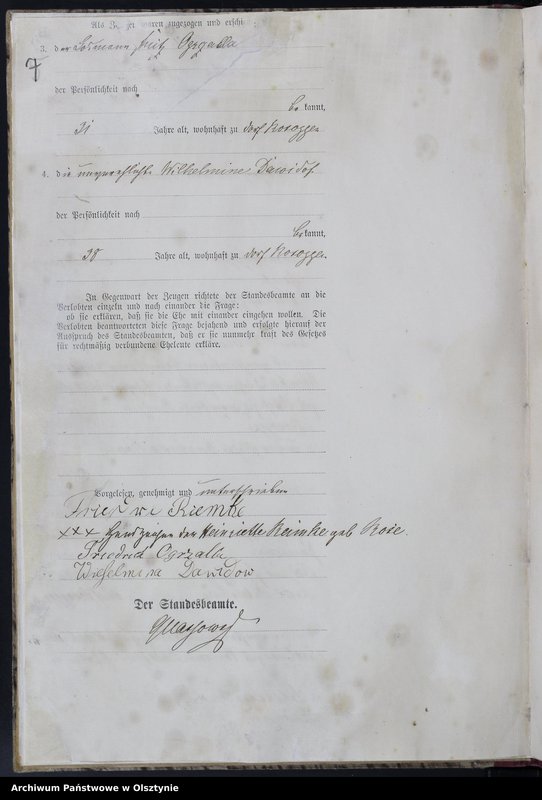 Als Zeugen waren zugezogen und erschienen:
7
3. der Losmann Fritz Ogrzalla
der Persönlichkeit nach
be kannt,
31 Jahre alt, wohnhaft zu Dorf
4. die unverehlichte Wilhelmine Dawidof
der Persönlichkeit nach
be kannt,
38 Jahre alt, wohnhaft zu Dorf
In Gegenwart der Zeugen richtete der Standesbeamte an die
Verlobten einzeln und nach einander die Frage:
ob sie erklären, daß sie die Ehe mit einander eingehen wollen. Die
Verlobten beantworteten diese Frage bejahend und erfolgte hierauf der
Ausspruch des Standesbeamten, daß er sie nunmehr kraft des Gesetzes
für rechtmäßig verbundene Eheleute erkläre.
Vorgelesen, genehmigt und unterschrieben
Riemke
xxx Handzeichen der Henriette Reimke geb Rose.
Friedrich Ogrzalla
Wilhelmina Dawidow
Der Standesbeamte.
Archiwum Państwowe w Olsztynie